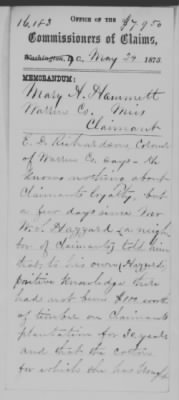 16,183 $7950
OFFICE OF THE
Commissioners of Claims,
Washington, D.C. May 27. 1875.
MEMORANDUM:
Mary A. Hammett
Warren Co. Miss
Claimant
E. D. Richardson, Colored
of Warren Co. says - He
knows nothing about
Claimants loyalty, but
a few days since Mr
Haggard a neigh
bor of Claimants told him
that to his own (Haggards)
positive knowledge there
had not been $100 worth
of timber on Claimants
plantation for 30 years
and that the cotton
for which she has